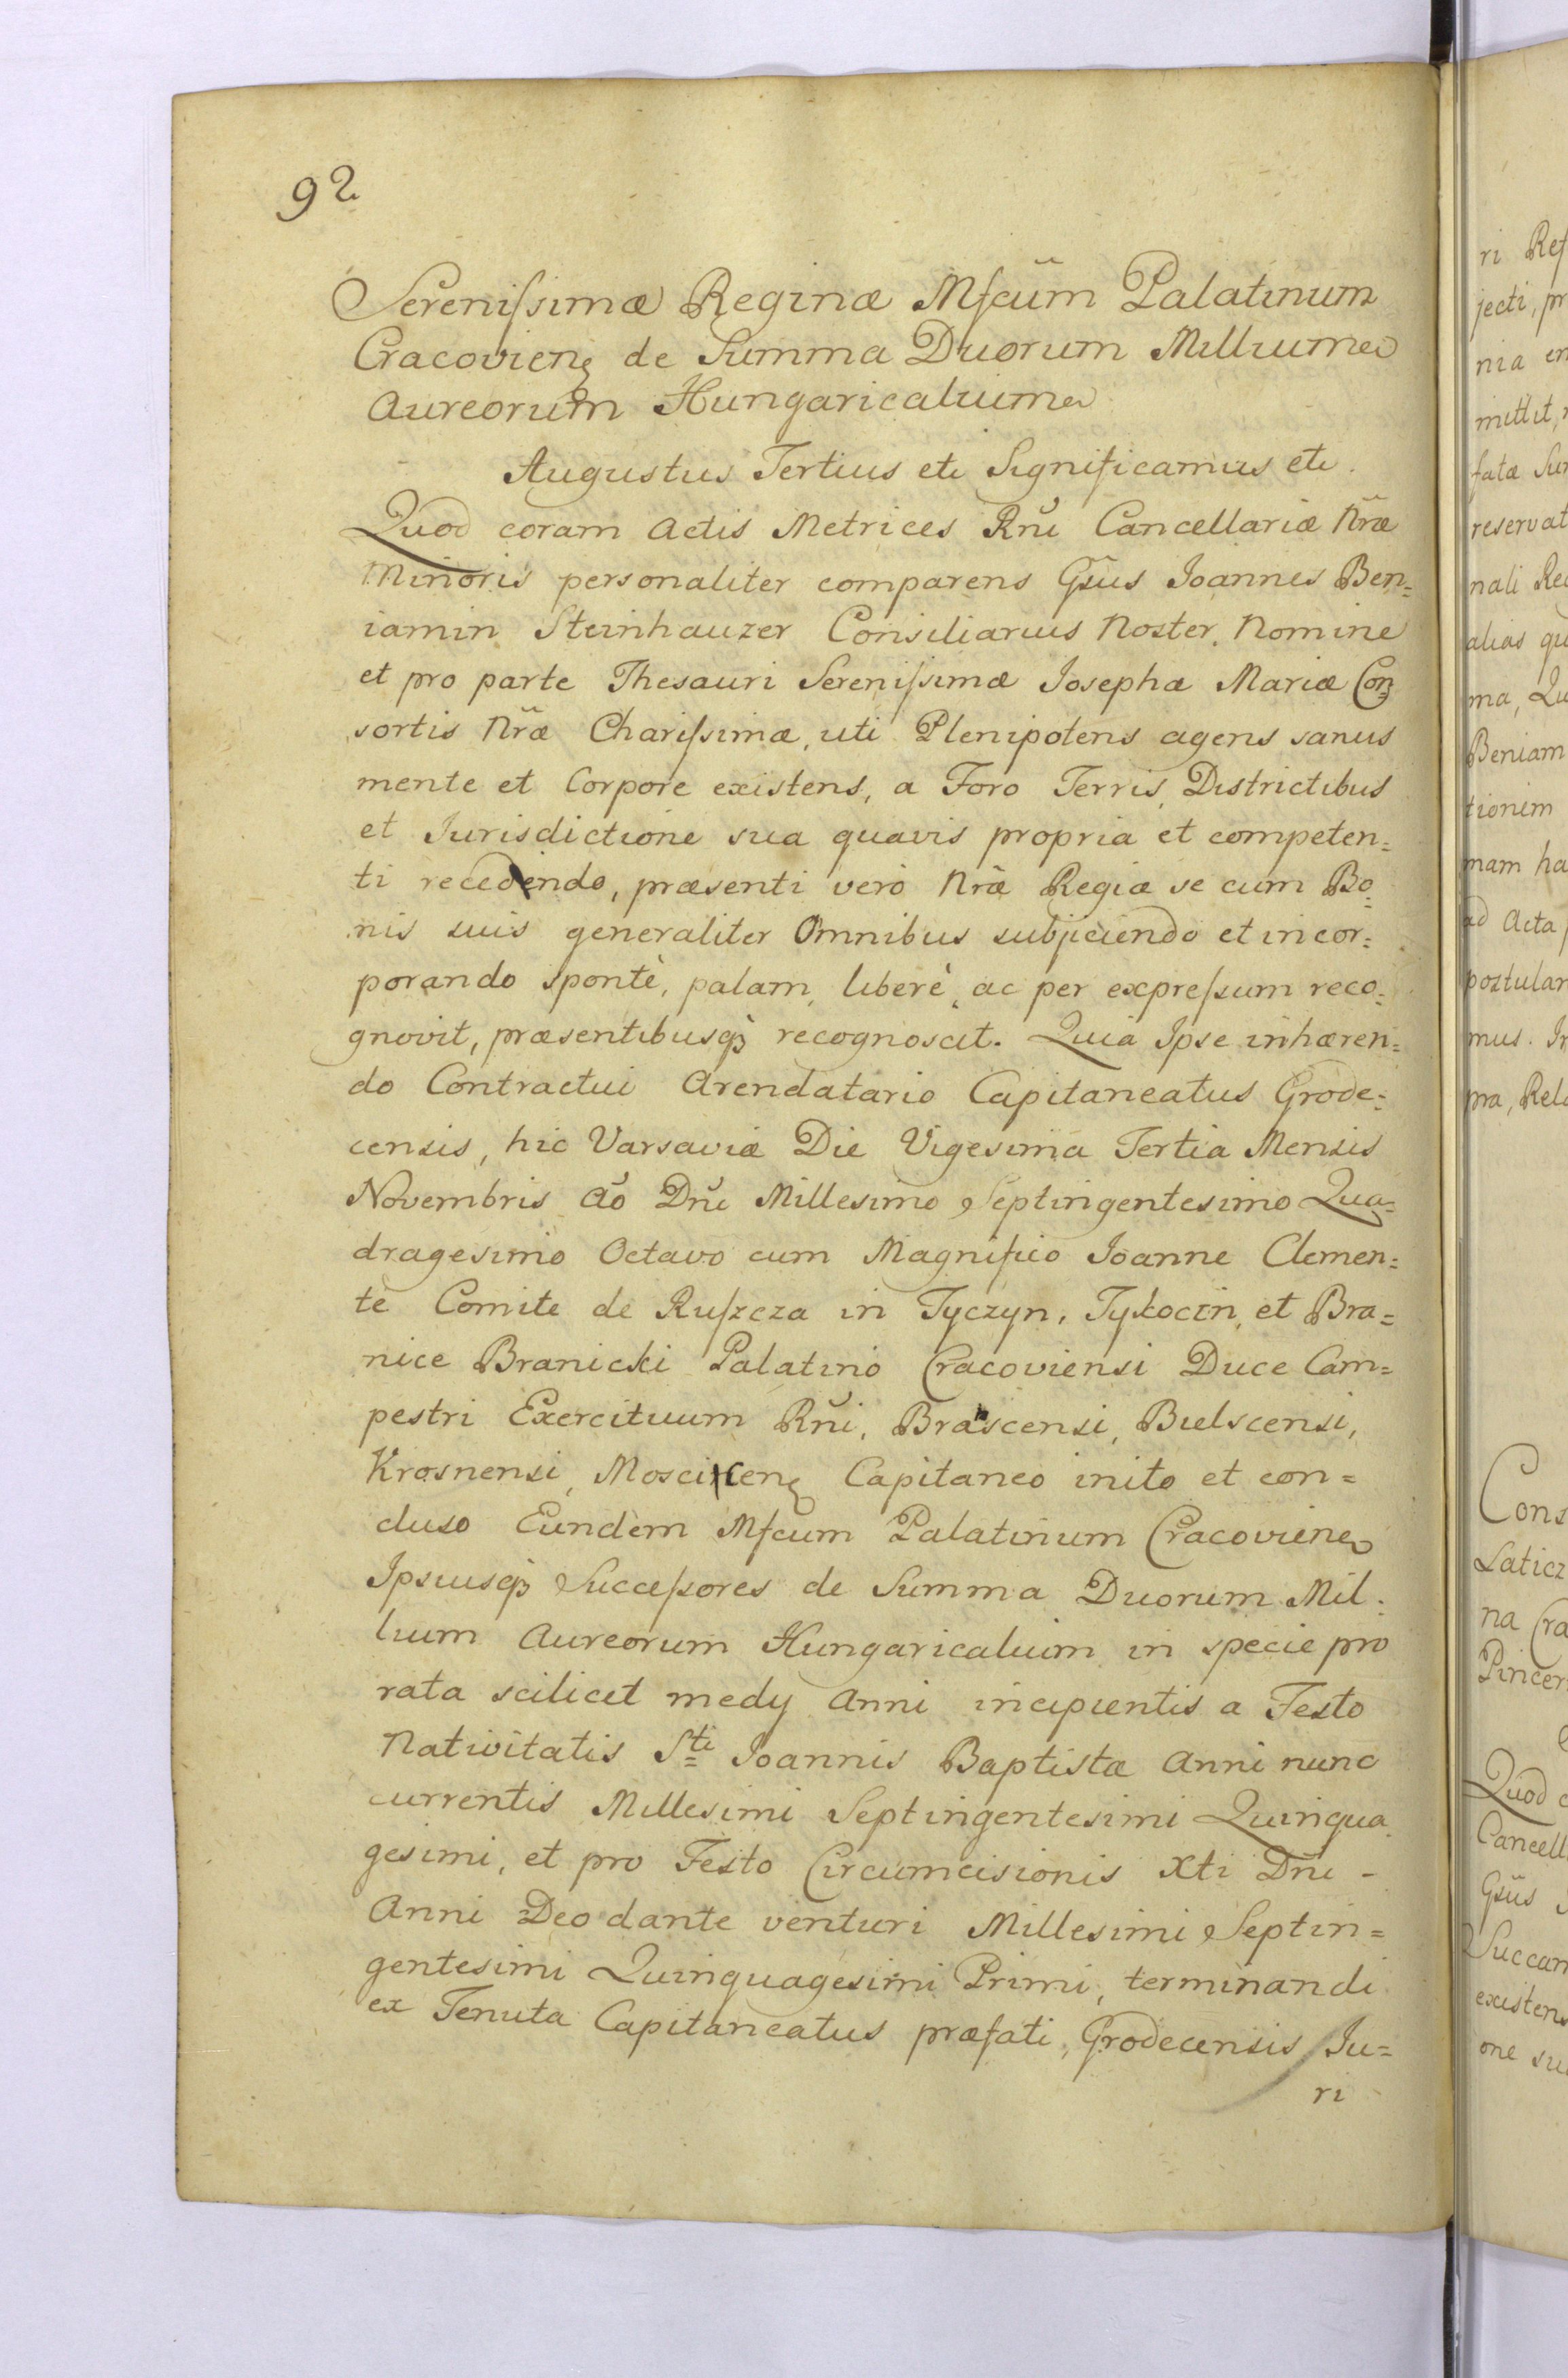 92
Serenissimæ Reginæ Mfcũm Palatinum
Cracovieñ de Summa Duorum Millium
Aureorum Hungaricalium
Augustus Tertius etc Significamus etc.
Quod coram Actis Metrices Rñi Cancellariæ Nr̃æ
Minoris personaliter comparens Gsũs Joannes Ben=
iamin Steinhauzer Consiliarius Noster, Nomine
et pro parte Thesauri Serenissimæ Josephæ Mariæ Con=
sortis Nr̃æ Charissimæ, uti Plenipotens agens sanus
mente et Corpore existens, a Foro Terris, Districtibus
et Jurisdictione sua quavis propria et competen=
ti recedendo, præsenti verò Nr̃æ Regiæ se cum Bo=
nis suis generaliter Omnibus subjiciendo et incor=
porando spontè, palam, liberè, ac per expressum reco=
gnovit, præsentibusq3 recognoscit. Quia Ipse inhæren=
do Contractui Arendatario Capitaneatus Grode=
censis, hic Varsaviæ Die Vigesima Tertia Mensis
Novembris Aõ Dñi Millesimo Septingentesimo Qua=
dragesimo Octavo cum Magnifico Joanne Clemen=
te Comite de Ruszcza in Tyczyn, Tykocin, et Bra=
nice Branicki Palatino Cracoviensi Duce Cam=
pestri Exercituum Rñi, Branscensi, Bielscensi,
Krosnensi, Mosciceñ Capitaneo inito et con=
cluso Eundem Mfcum Palatinum Cracovieñ
Ipsiusq3 Successores de Summa Duorum Mil=
lium Aureorum Hungaricalium in specie pro
rata scilicet medy Anni incipientis a Festo
Nativitatis Sti Joannis Baptistæ Anni nunc
currentis Millesimi Septingentesimi Quinqua
gesimi, et pro Festo Circumcisionis Xti Dñi -
Anni Deo dante venturi Millesimi Septin=
gentesimi Quinquagesimi Primi, terminandi
ex Tenuta Capitaneatus præfati, Grodecensis Ju=
ri
ri
jecti, pr
nia
mittit,
fatæ
reservat
nali
alias
ma,
Beniam
tionem
mam ha
ad Acta
postular
mus.
pra,
Cons
Laticz
na
Pincer
Quod
Cancell
Gsũs
Succam
existens
one